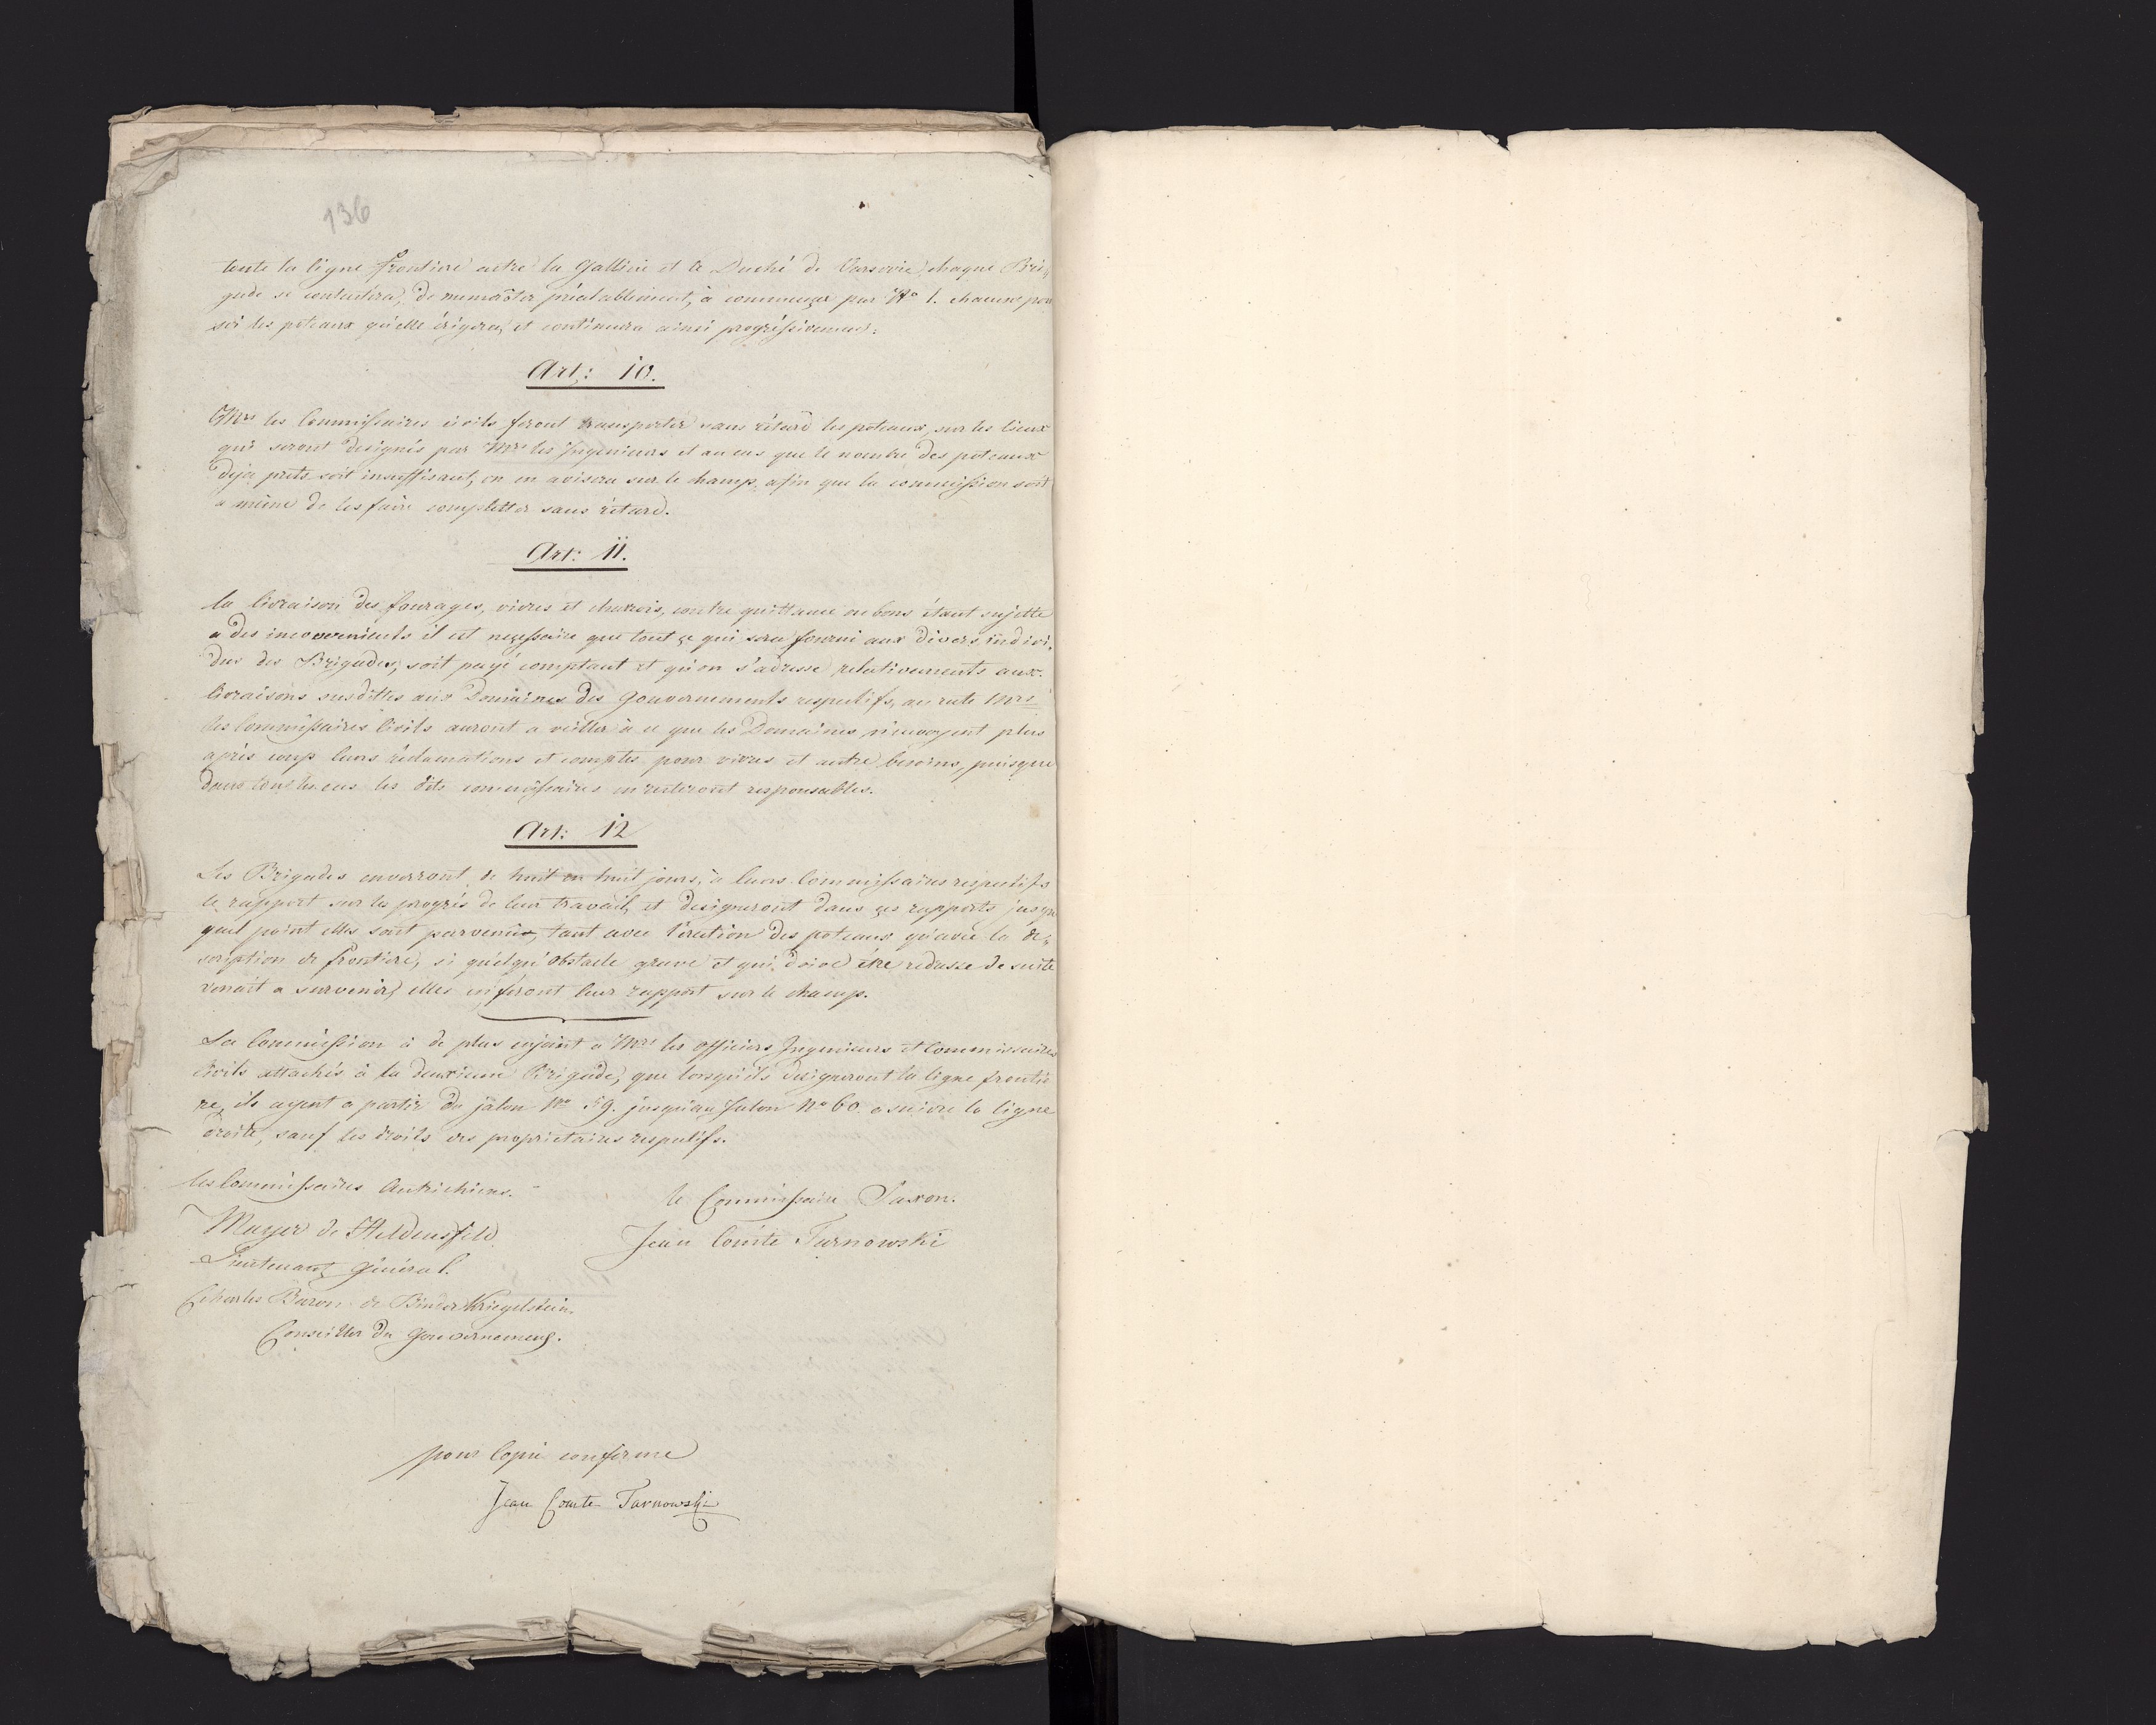 136
toute la ligne frontiere entre la Gallicie et le Duché de Varsovie, chaque Bri=
gade se contentera, de numeroter préalablement, à commencer par No 1. chacune pour
soi les poteaux qu'elle érigera, et continuera ainsi progressivement.
Art: 10.
Mrs les Commissaires civils feront transporter sans rétard les poteaux, sur les lieux
qui seront designés par Mrs les Ingenieurs et au cas que le nombre des poteaux
deja prets soit insuffisant, on en avisera sur le champ, afin que la commission soit
a même de les faire completter sans rétard.
Art: 11.
la livraison des fourages, vivres et charrois, contre quittance ou bons étant sujette
a des inconvenients il est necessaire que tout ce qui sera fourni aux divers indivi.
dus des Brigades, soit payé comptant et qu'on s'adresse relativements aux
livraisons susdittes aux Domaines des Gouvernements respectifs, au reste Mrs
les Commissaires Civils auront a veiller à ce que les Domaines n'envoyent plus
après coup leurs réclamations et comptes pour vivres et autre besoins, puisque
dans tous les cas les dits commissaires en resteront responsables.
Art: 12
Les Brigades enverront de huit en huit jours, à leurs Commissaires respectifs
le rapport sur les progrés de leur travail, et designeront dans ces rapports jusqu'a
quel point elles sont parvenües, tant avec l'érection des poteaux qu'avec la de=
scription de frontiere, si quelqu'obstacle grave et qui doive être redressé de suite
venait a survenir, elles en feront leur rapport sur le champ.
La Commission à de plus enjoint a Mrs les officiers Ingenieurs et Commissaires
Civils attachés à la deuxieme Brigade, que lorsqu'ils designeront la ligne frontie
re, ils ayent a partir du jalon No 59. jusqu'au jalon No 60 a suivre la ligne
droite, sauf les droits des proprietaires respectifs.
les Commissaires Autrichiens.
Mayer de Heldensfeld
Lieutenant Général.
Charles Baron de Binder Kriegelstein
Conseiller du Gouvernement.
le Commissaire Saxon.
Jean Comte Tarnowski
pour Copie conforme
Jean Comte Tarnowski